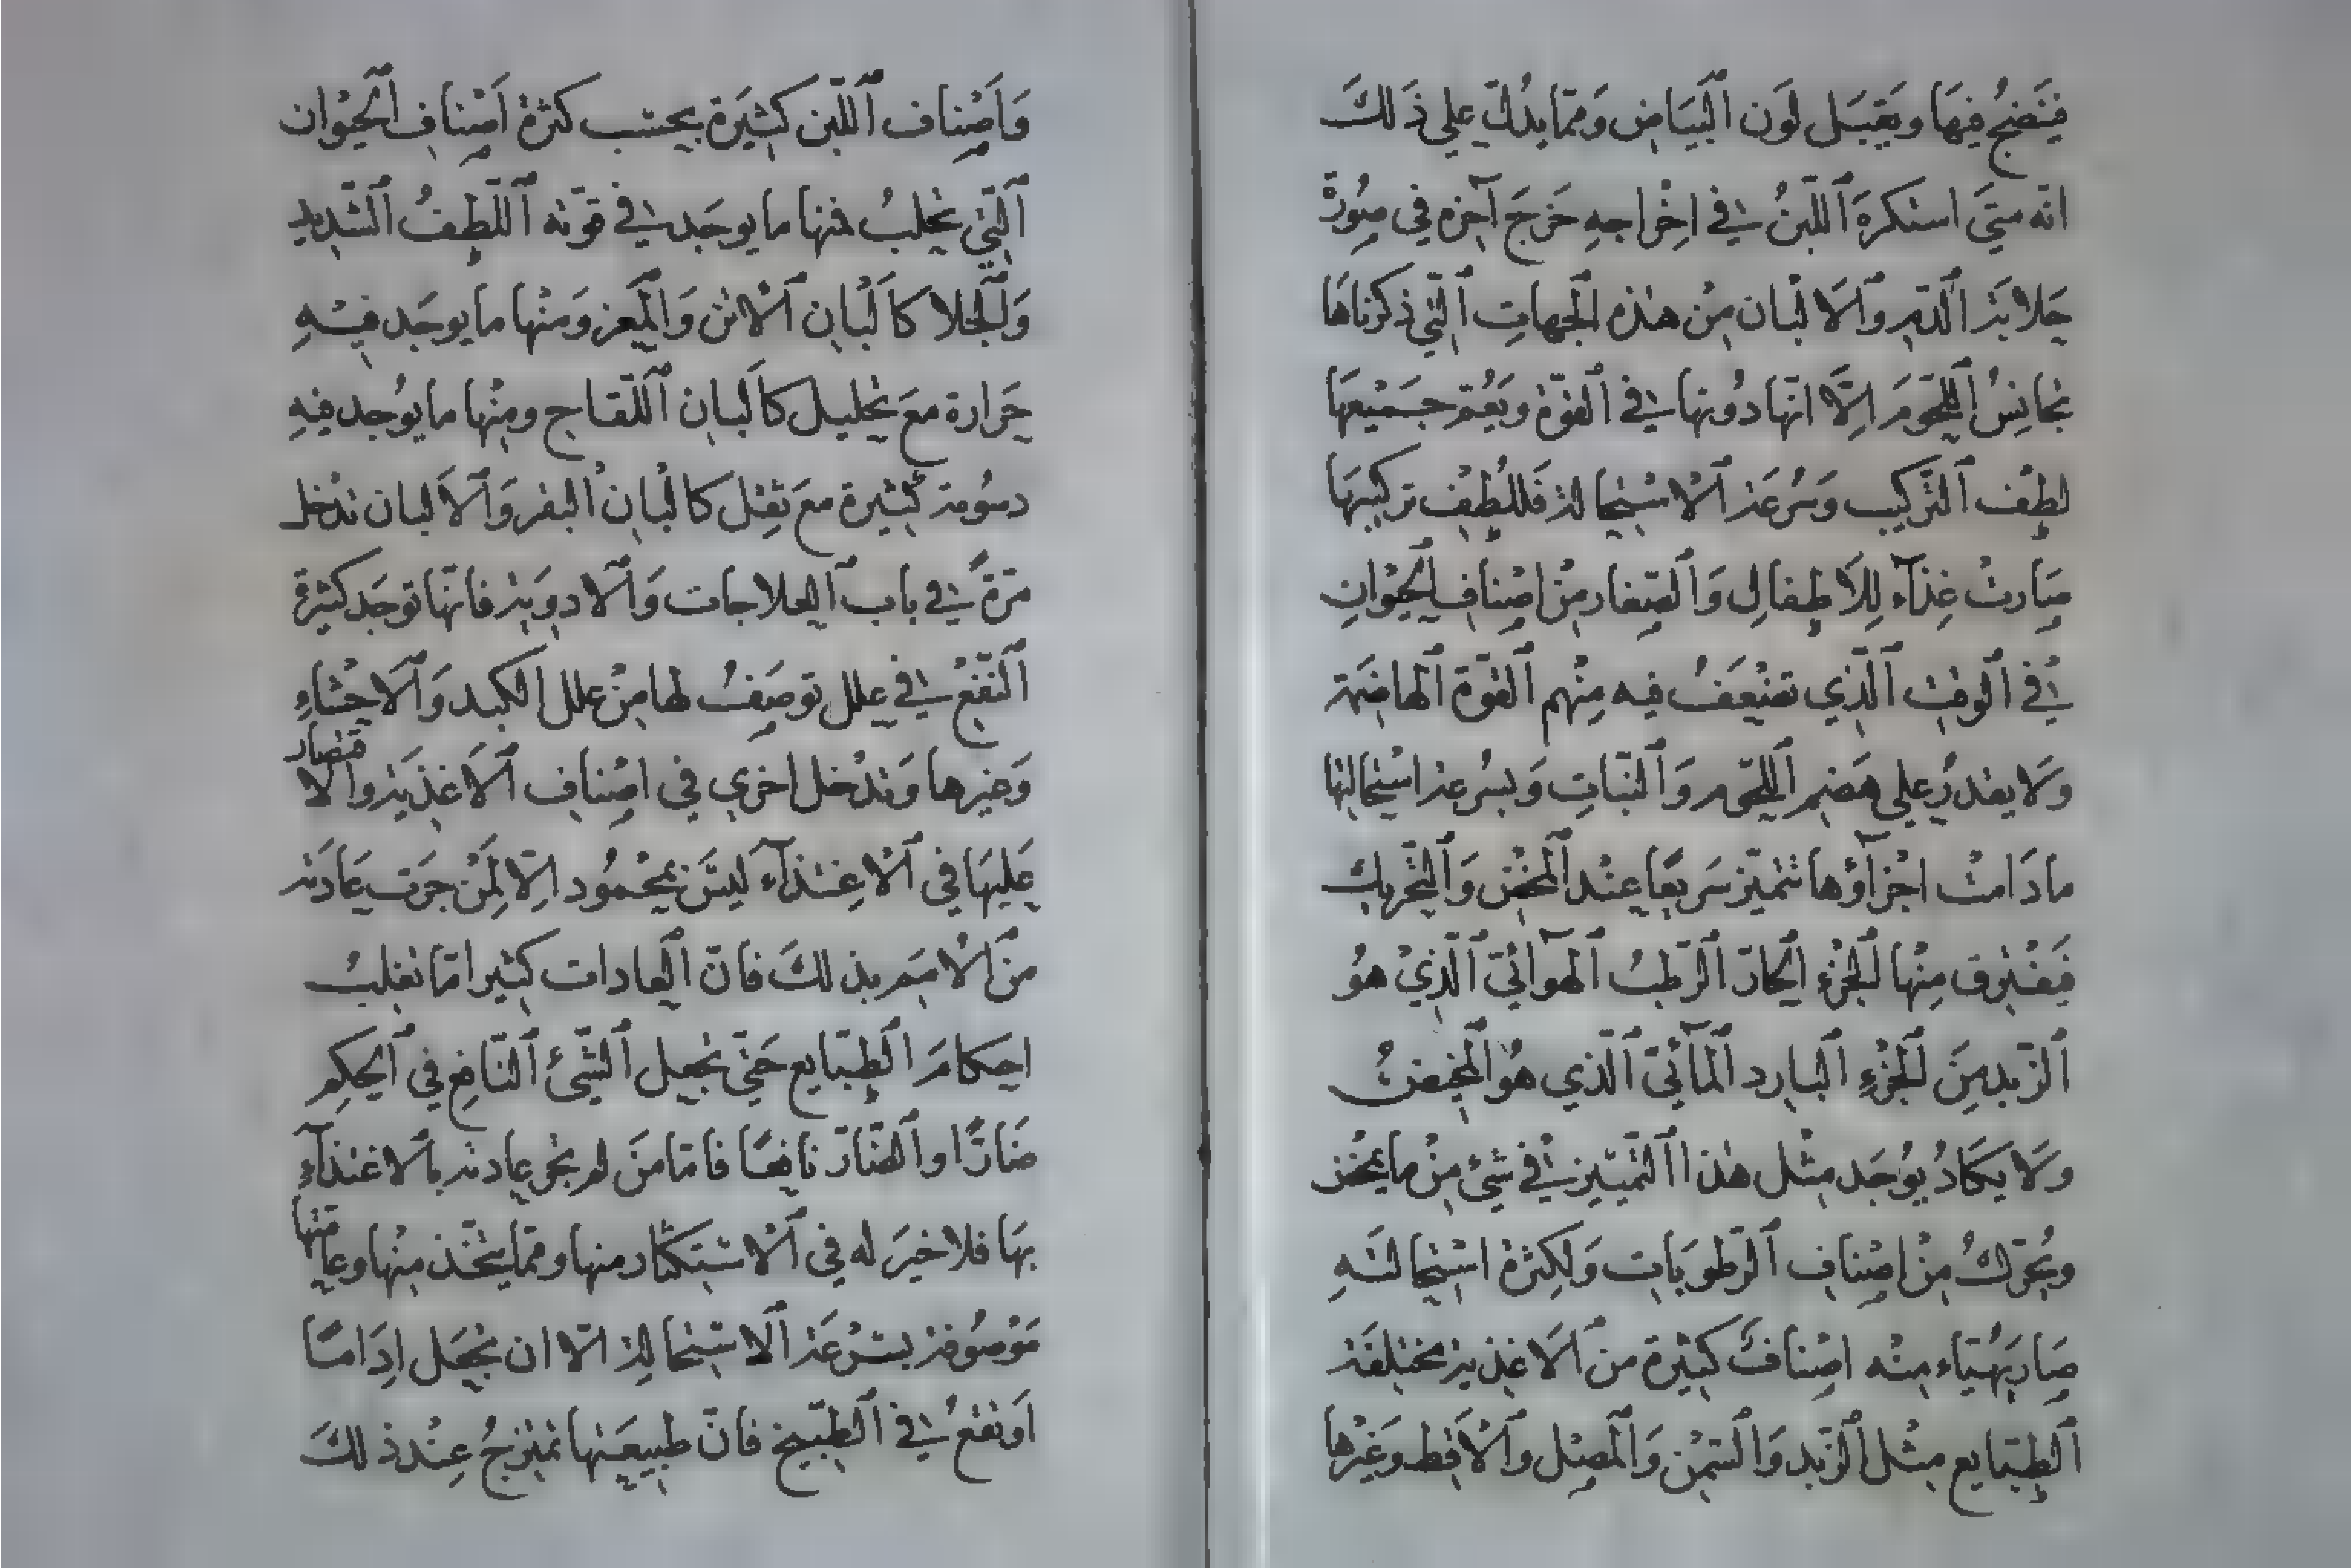 فَتَنضجُ فيهَا ويَقبَل لَون ٱلْبَيَاض وَممَّا يدُلّ علي ذَ لكَ
انّه متيَ استكرهَ ٱللّبنُ في اخْراجهِ خَرجَ آخره في صُورة
جلابَة ٱلدّم وٱلالْبان منْ هذه ٱلجهاتِ ٱلّتي ذكرناهَا
تجانِسُ ٱللّحُومَ اِلَّا انّها دُونها في ٱلقوّة ويَعُمّ جَميْعهَا
لطف ٱلتّركيب وَسُرعَة ٱلاسْتحالة فَللُطفْ تركيبهَا
صَارتْ غِذآء لِلاَطفالِ وَٱلصّغار منْ اصْنافِ ٱلحيْوانِ
في ٱلوقت ٱلّذي تضْعَفُ فيه منْهم ٱلقوّة ٱلهاضَمة
وَلا يقدرُ علي هَضم ٱللّحوم وَٱلنّباتِ وَبسُرعة اسْتحالتها
مادَامتْ اجْزآؤها تتميّز سَريعًا عنْد ٱلمخْض وَٱلتّحريك
فَيفْترق منْها ٱلجُزْء ٱلحارّ ٱلرّطبُ ٱلهوآئيّ ٱلّذيْ هوُ
ٱلزّبد منَ ٱلجُزْءِ ٱلبارد ٱلمآئيّ ٱلّذي هوُ ٱلمخيضُ
وَلا يكَادُ يوُجَد مثْل هذا ٱلتّمييز في شئ منْ ما يمْخض
ويُحرّكُ منْ اصْناف ٱلرّطوبَات وَلكثرة اسْتحالتَهِ
صَار يَهيّاء منْه اصْنافٌ كثيرة منَ ٱلاَغذية مختلفَة
ٱلطبّايع مثْل ٱلزّبد وَٱلسّمْن وَٱلْمصْل وٱلاَقط وَغيْرها
وَاَصْناف ٱللّبن كثيَرة بحسَب كثرة اَصْناف ٱلحيْوان
ٱلّتي تحلبُ فمنها ما يوجَد في قوّته ٱللّطفُ ٱلشّديد
وَٱلجلا كاَلْبان ٱلاتن وَٱلمعَز وَمنْها ما يوجَد فيْهِ
حَرارة معَ تحليل كاَلبان ٱللّقاح ومنْها ما يوُجد فيهِ
دسُومة كثيرة معَ ثقل كالْبان ٱلبقر وَٱلاَلبان تدْخل
مَرّةً في باب ٱلعلاجات وَٱلادويَة فانّهَا توجَد كثيْرة
ٱلنّفعْ في علل توصَفُ لها منْ علل ٱلكبد وَٱلاَحْشاءِ
وَغيرها وَتدْخل اخري في اصْناف ٱلاَغذيَة وٱلاقتصار
عَليهَا في ٱلاغتذآء ليسَ بمحْمُود اِلاّ لِمَنْ جرَت عَادَته
منَ ٱلامَم بذ لكَ فانّ ٱلعادات كثيرا مّا تغلبُ
احكامَ ٱلطبّايع حَتّي تجْعل ٱلشّئَ ٱلنّافع في ٱلحكم
ضَارًّا وٱلضّارّ نافعًا فامّا منَ لم تجْر عادته بٱلاغتذآءِ
بهَا فلا خيرَ له في ٱلاسْتكثار منها وممّا يتّخَذ منْها وعامّتها
مَوْصُوفة بسُرْعَة ٱلاسْتحالة الاّ ان تجْعَل ادَامًا
اَو تقعُ في ٱلطبّيخ فانّ طبيعَتها تمتزجُ عنْد ذ لكَ